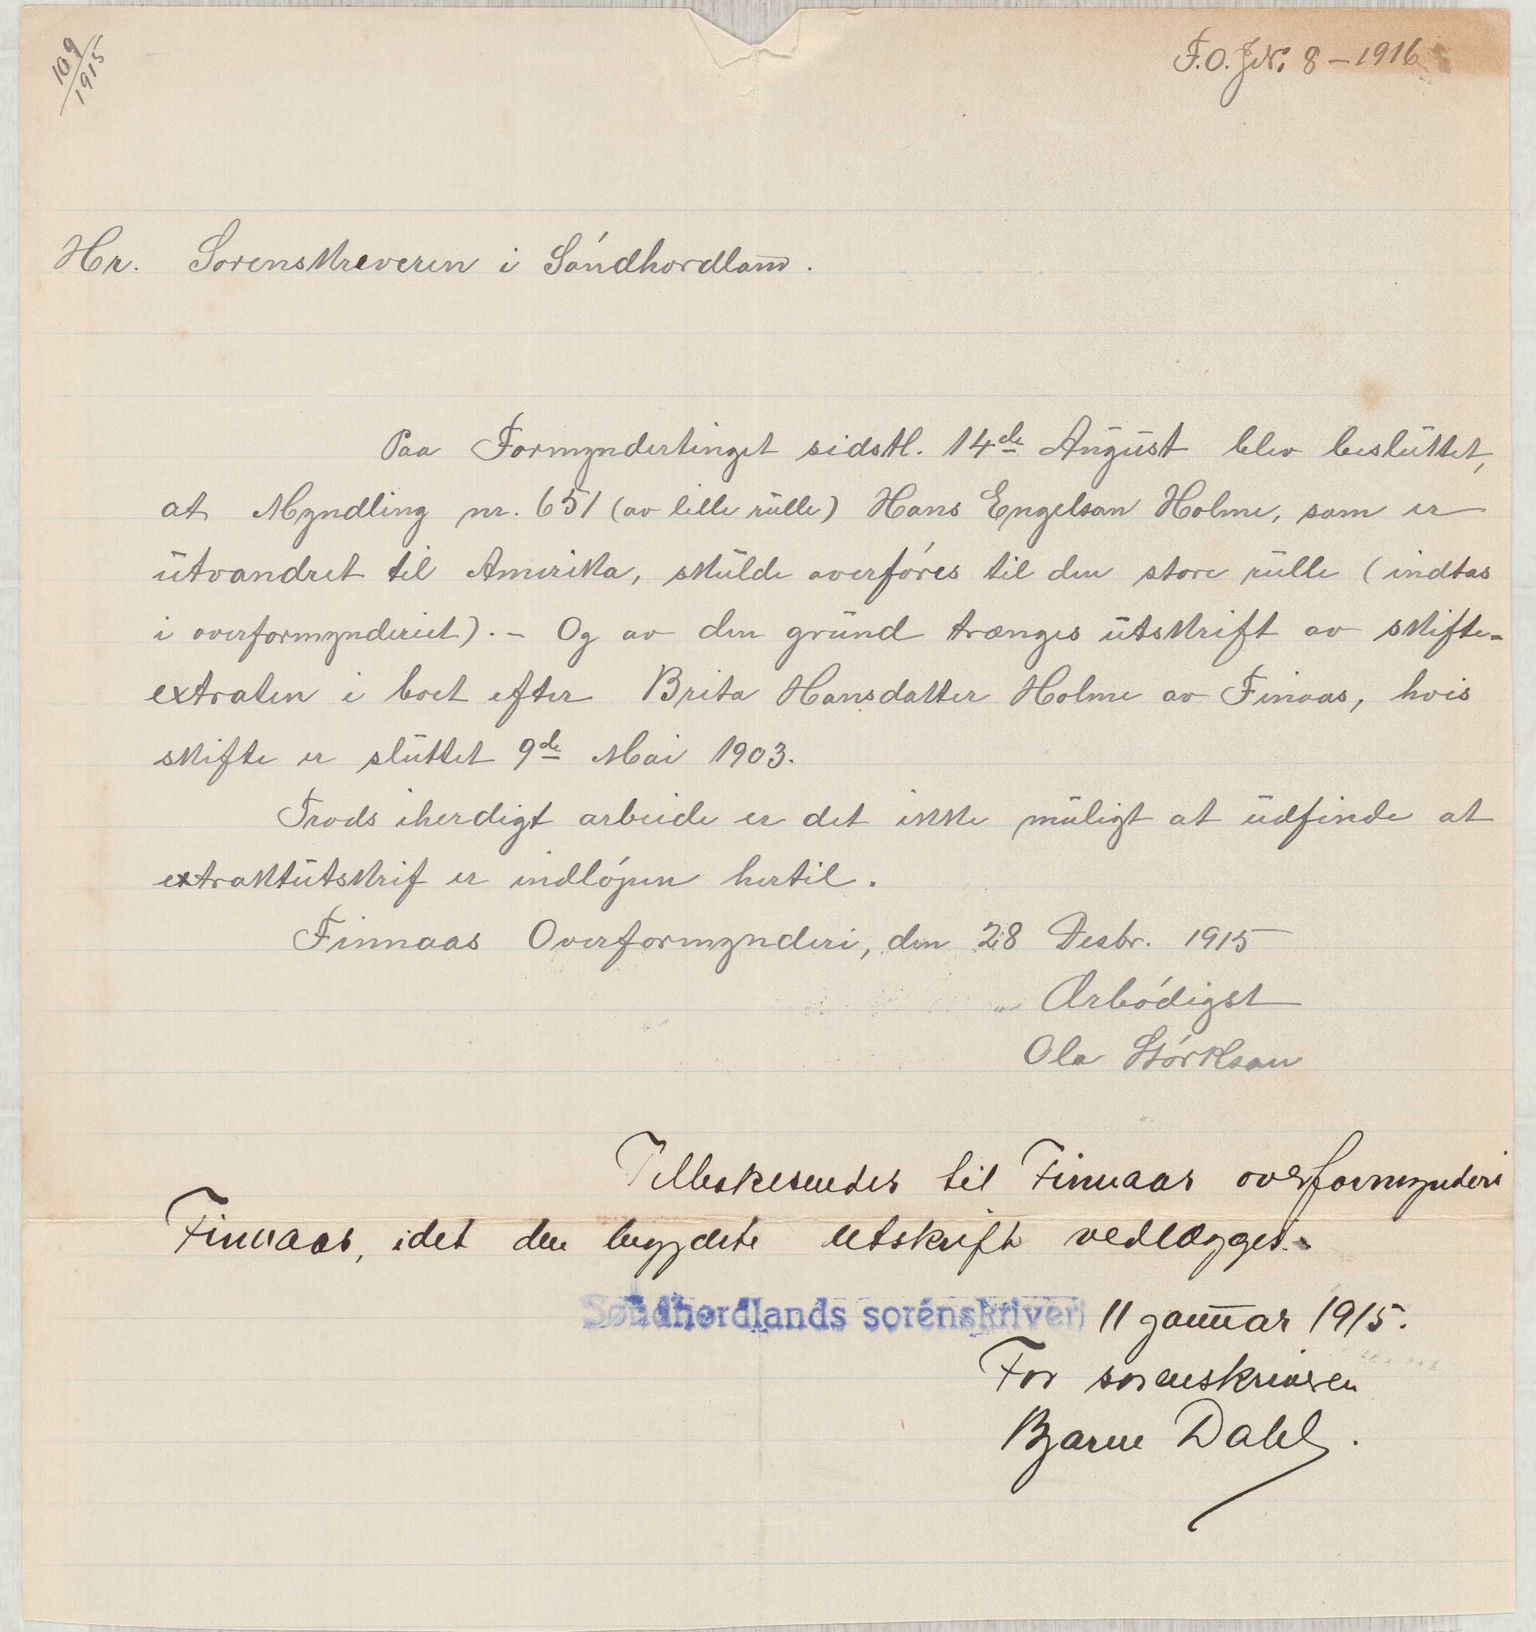 109/1915
F.O.J.Nr. 8 – 1916
Hr. Sorenskreveren i Sóndhordland.
Paa Formyndertinget sidstl. 14de August blev besluttet,
at Myndling nr. 651 (av lille rulle) Hans Engelsen Holme, som er
utvandret til Amerika, skulde overføres til den store rulle (indtas
i overformynderiet). – Og av den grund trænges utskrift av skifte-
extraten i boet efter Brita Hansdatter Holme av Finaas, hvis
skifte er sluttet 9de Mai 1903.
Trods iherdigt arbeide er det ikke muligt at udfinde at
extraktutskrif er indlópen hertil.
Finnaas Overformynderi, den 28 Desbr. 1915
Ærbódigst
Ola Stórkson
Tilbakesendes til Finnaas overformynderi
Finnaas, idet den begjærte utskrift vedlægges.
Søndhordlands sorenskriveri 11 januar 1915.
For sorenskriveren
Bjarne Dahl.